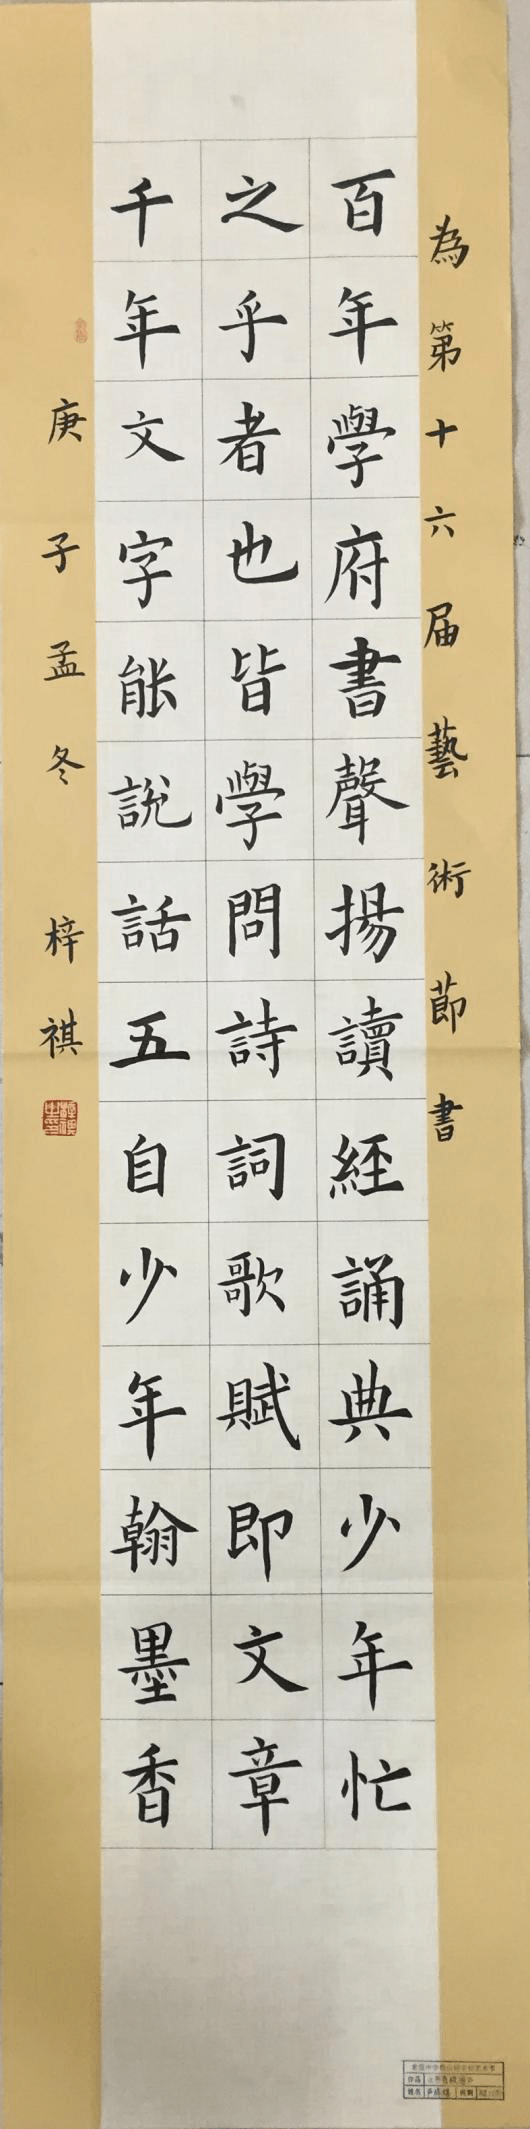 為第十六届藝術節書
百年學府書聲揚讀經誦典少年忙
之乎者也皆學問詩詞歌賦即文章
千年文字能說話五自少年翰墨香
庚子孟冬 梓祺